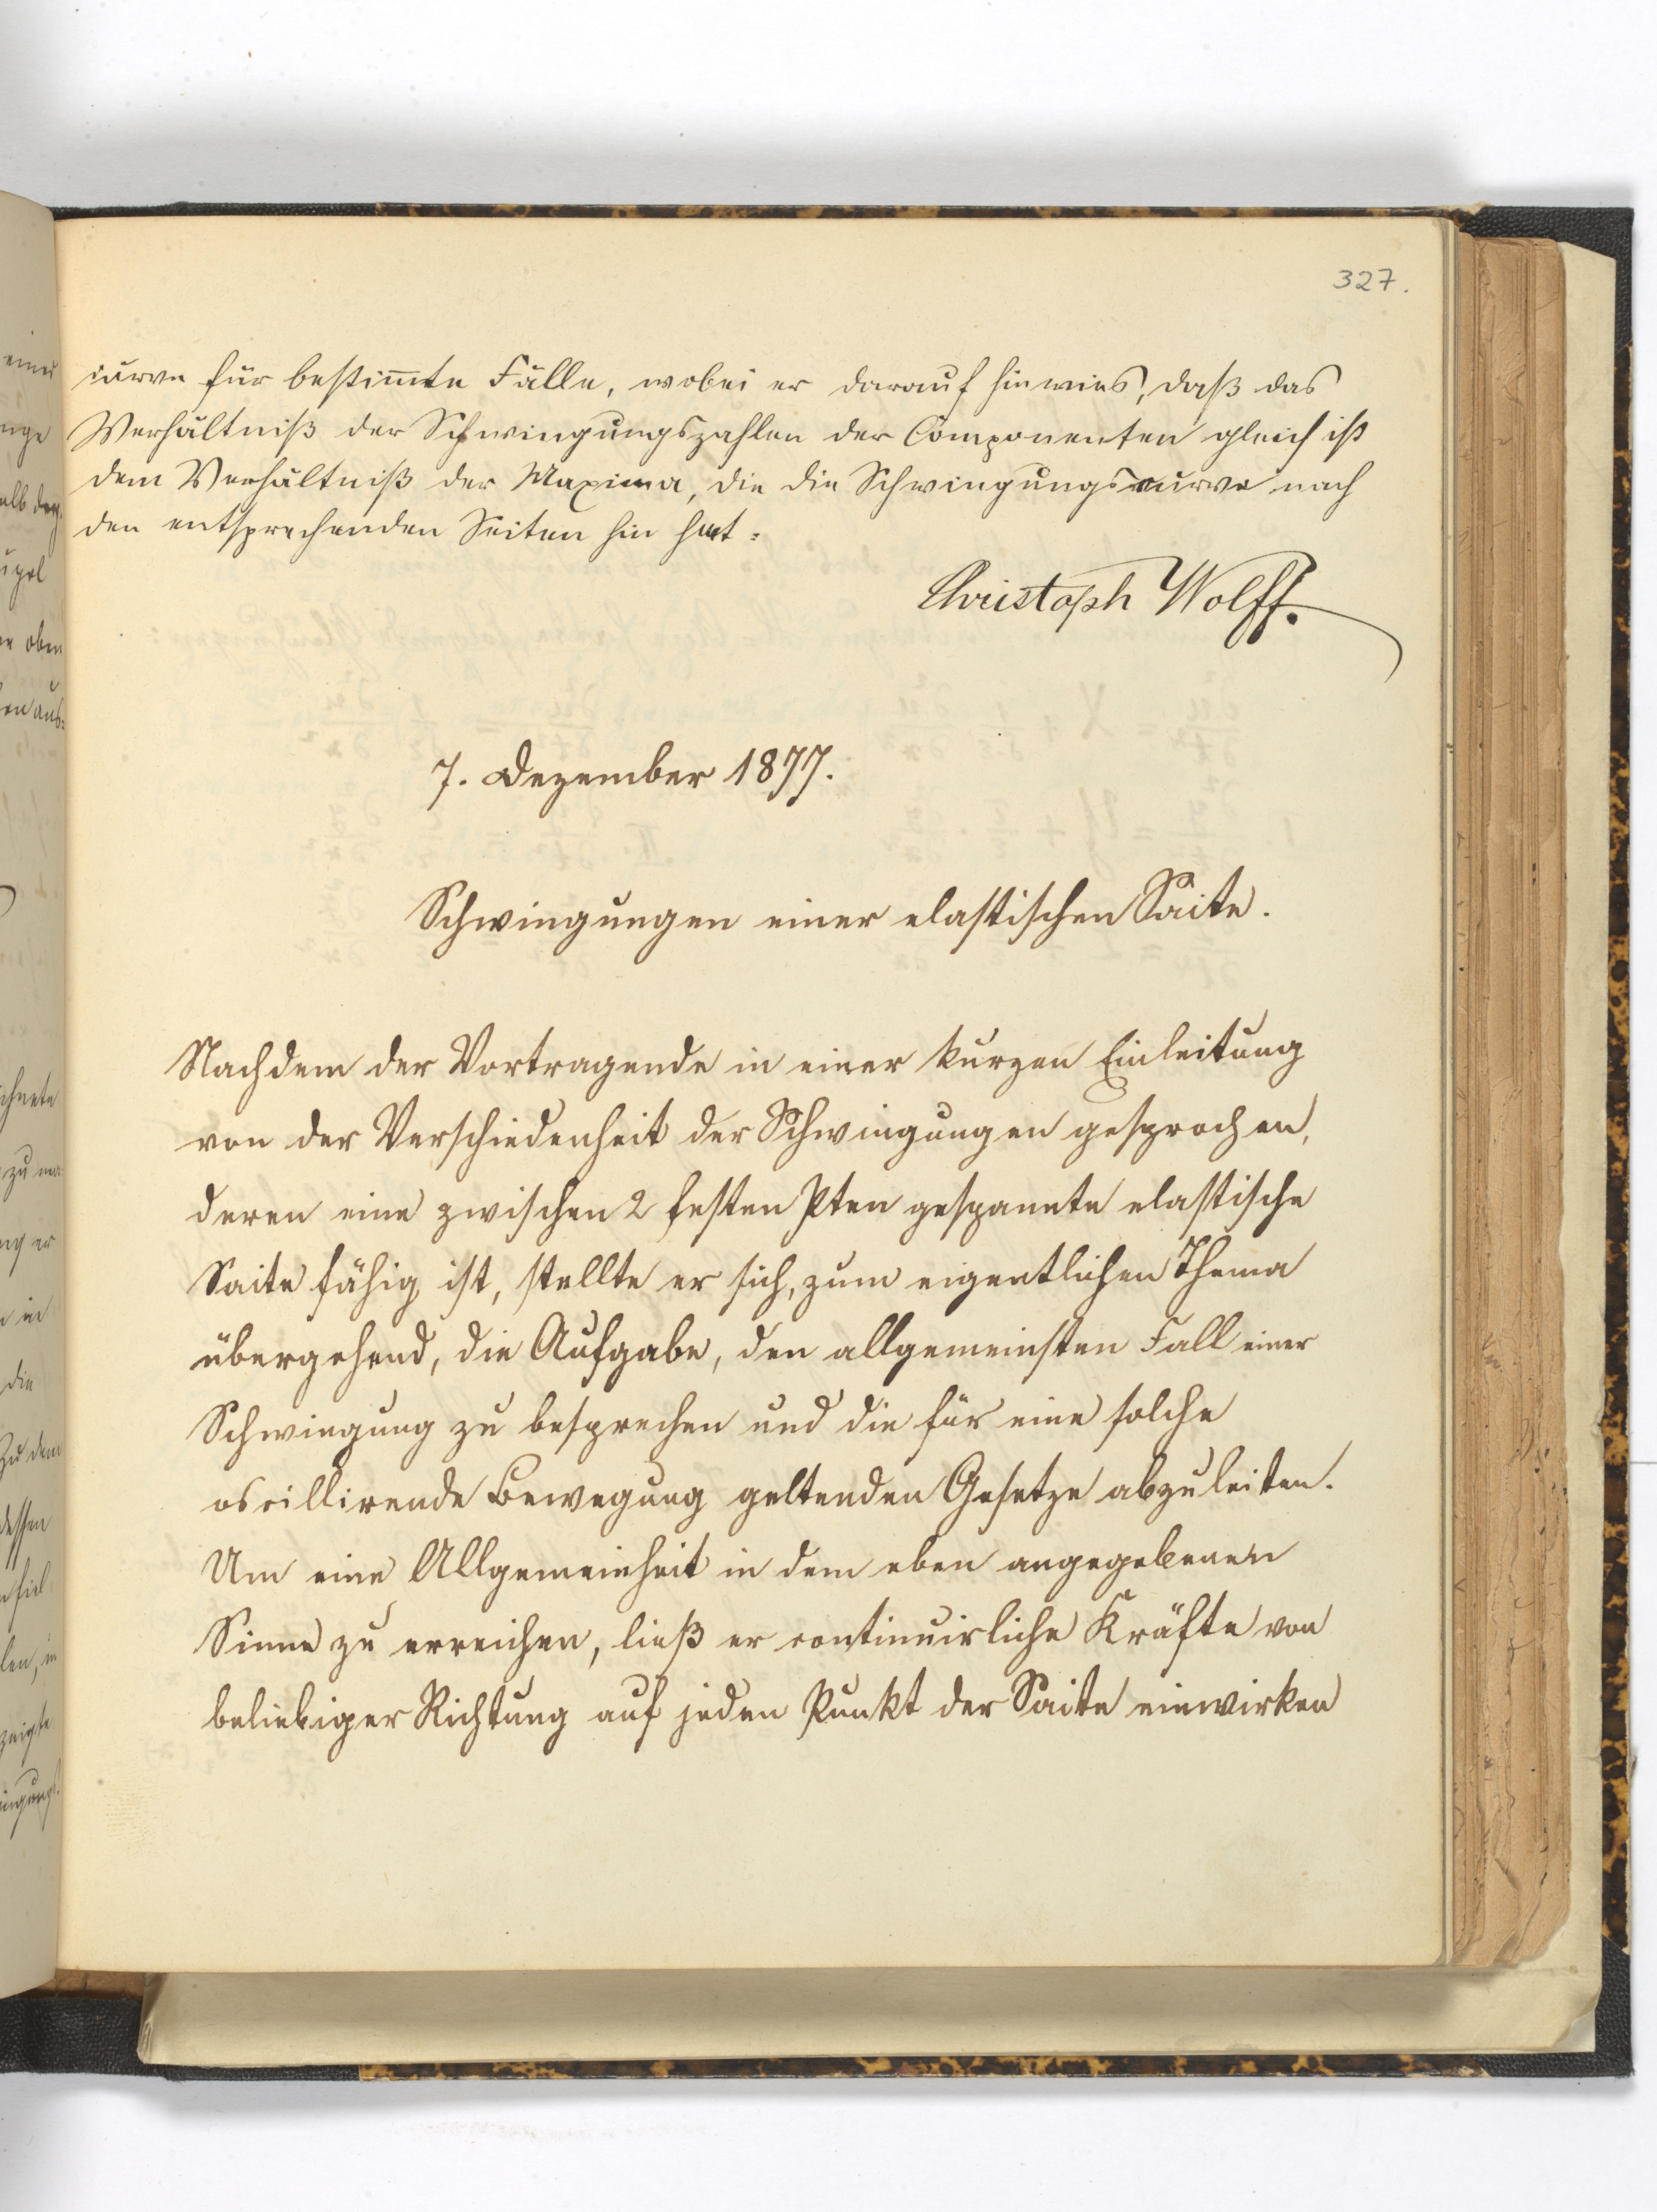 327.
curve für bestim̄te Fälle, wobei er darauf hinwies, daß das
Verhältniß der Schwingungszahlen der Componenten gleich ist
dem Verhältniß der Maxima, die die Schwingungscurve nach
den entsprechenden Seiten hin hat.
Christoph Wolff.
7. Dezember 1877.
Schwingungen einer elastischen Saite.
Nachdem der Vortragende in einer kurzen Einleitung
von der Verschiedenheit der Schwingungen gesprochen,
deren eine zwischen 2 festen Pten gespannte elastische
Saite fähig ist, stellte er sich, zum eigentlichen Thema
übergehend, die Aufgabe, den allgemeinsten Fall einer
Schwingung zu besprechen und die für eine solche
oscillirende Bewegung geltenden Gesetze abzuleiten.
Um eine Allgemeinheit in dem eben angegebenen
Sinne zu erreichen, ließ er continuirliche Kräfte von
beliebiger Richtung auf jeden Punkt der Saite einwirken